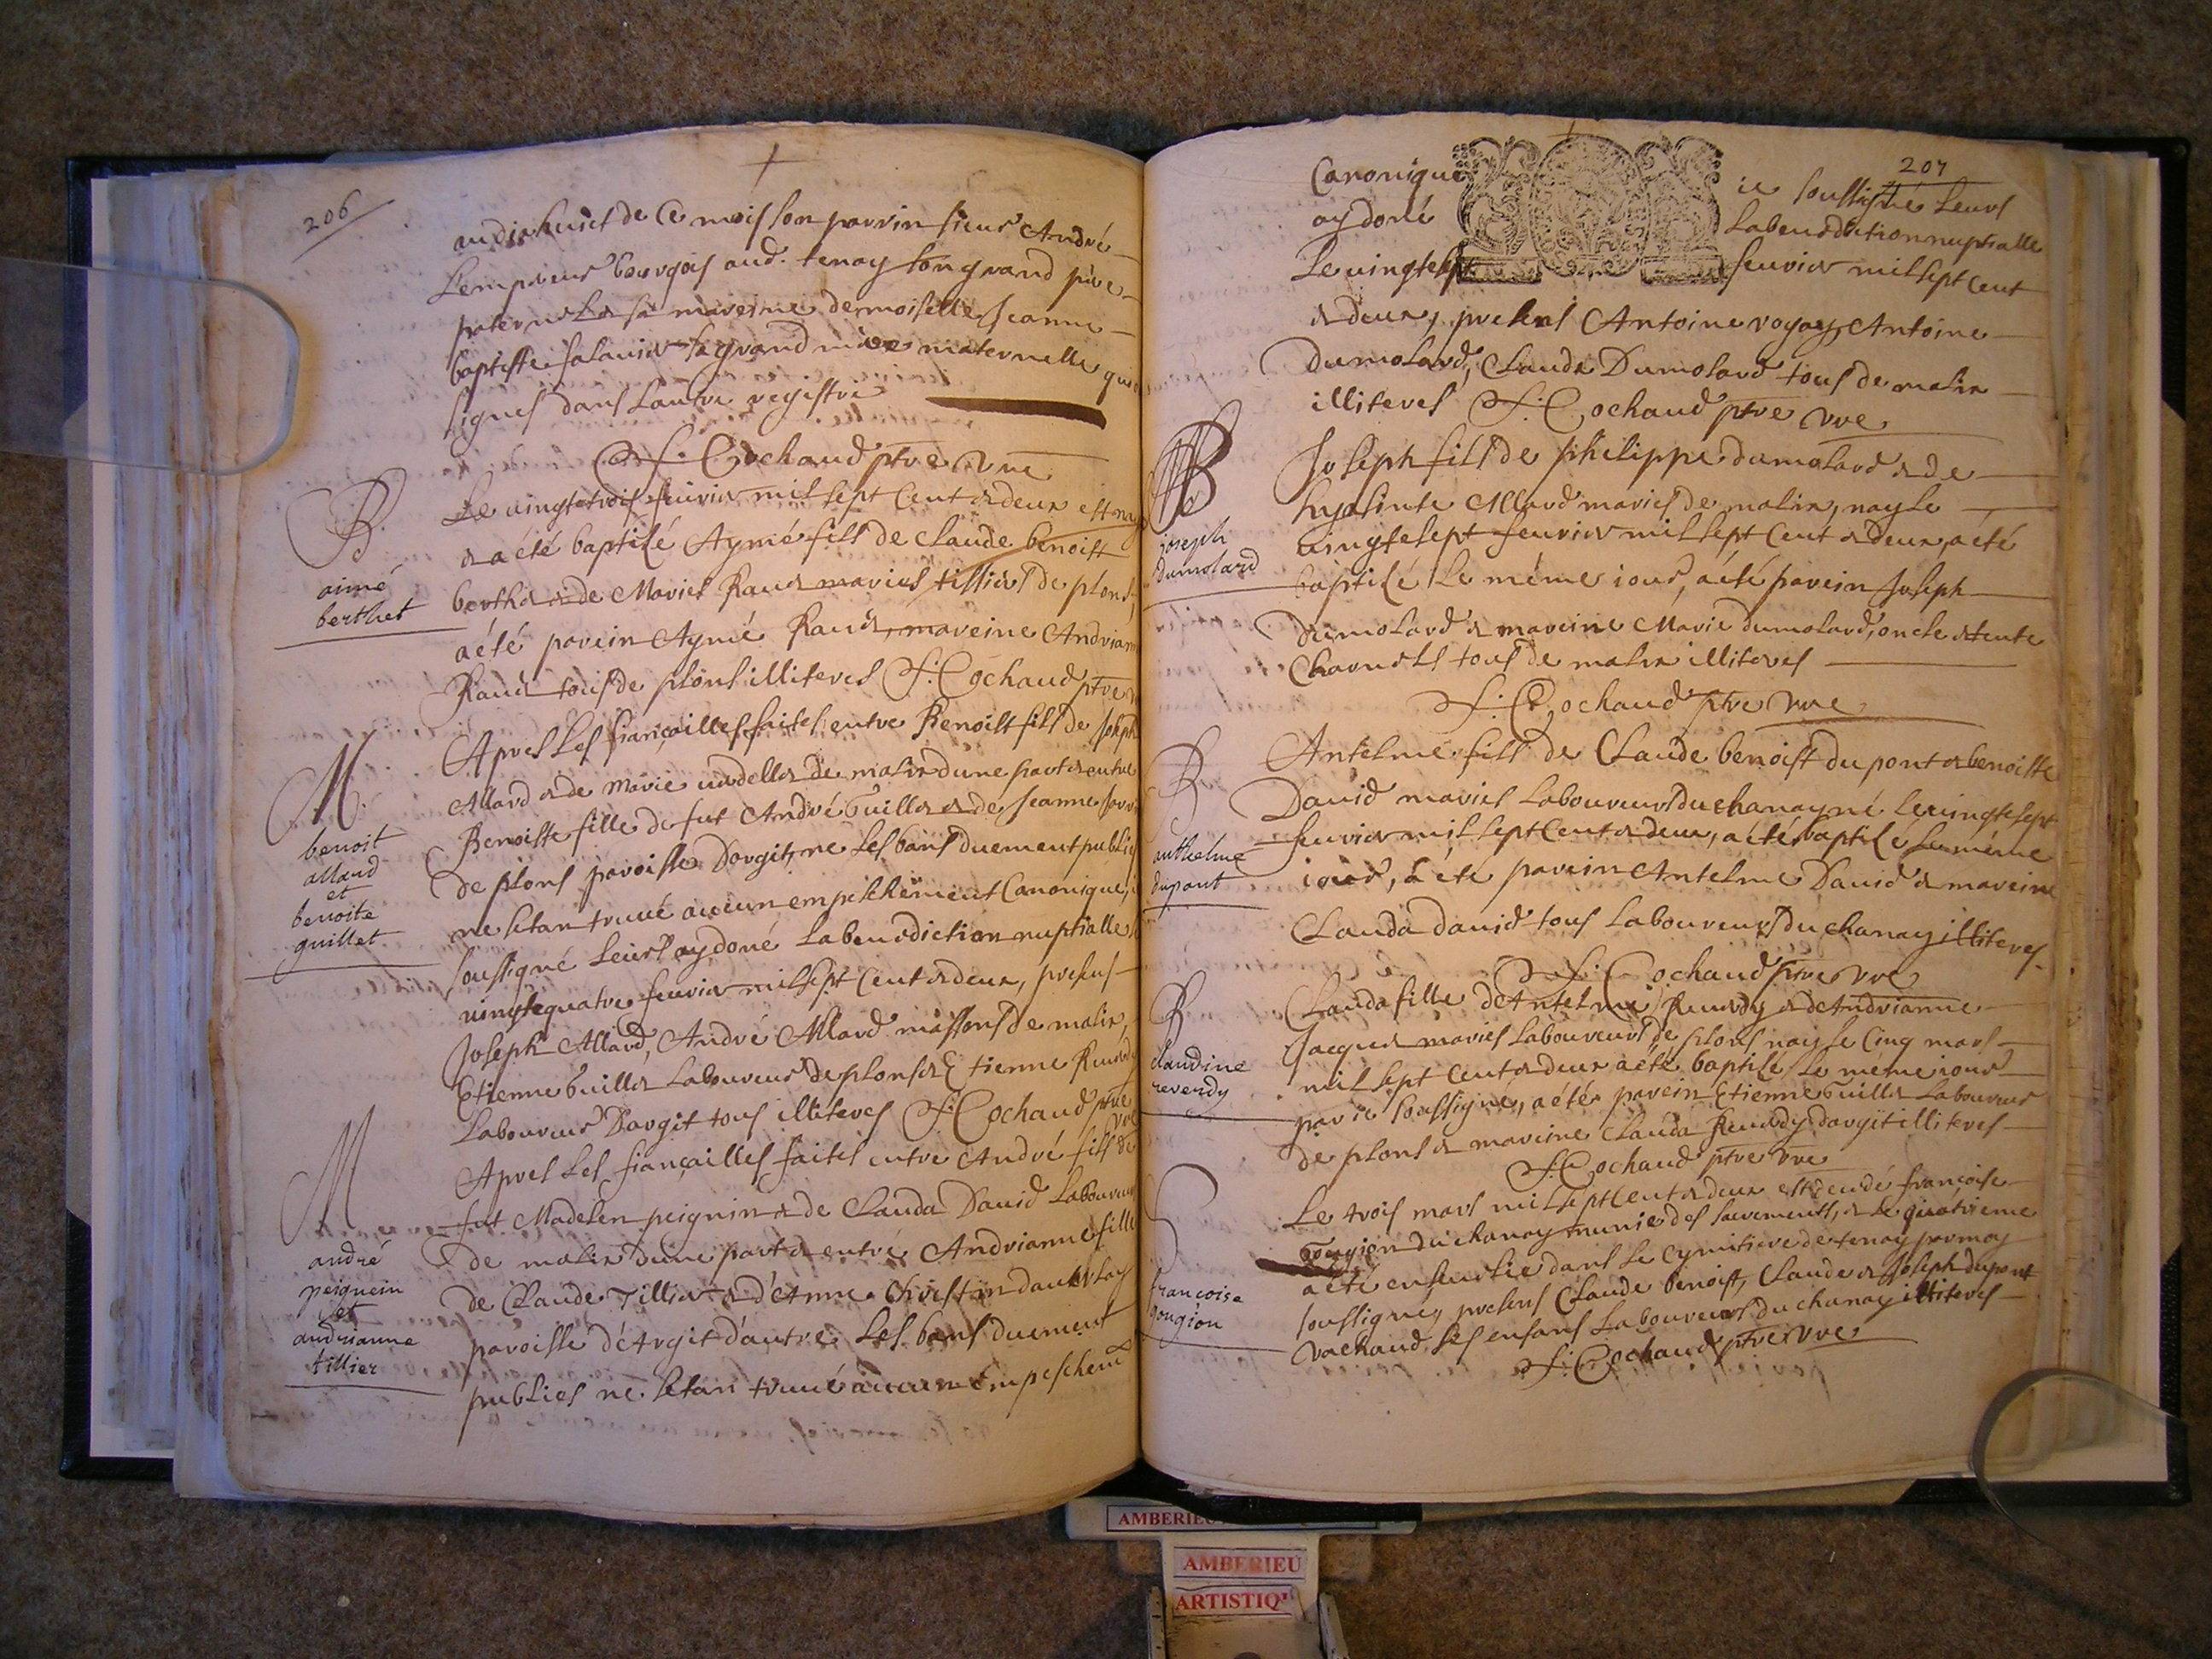 206
au dixhuict de Ce mois son parrin sieur André
Lempereur bourgois aud. tenay son grand pere
paternel & sa mareine demoiselle Jeanne
baptiste salauier sa grand mere maternelle qui
signes dans lautre registre
f. Cochaud ptre vre
B.
aimé
berthet
Le uingtetrois feurier mil sept Cent & deux est nay
& a été baptisé Aymé fils de Claude benoist
berthet & de Marie Raud mariés tissiers de plons,
a été parein Aymé Raud, mareine Andrianne
Raud tous de plons illiteres f. Cochaud ptre
M.
benoit
allard
et
benoite
guillet
Apres les fiançailles faites entre Benoist fils de Joseph
Allard & de Marie uudellet de malix dune part & entre
Benoiste fille de fut André Guillet & de Jeanne
de plons paroisse Dargit, ne les bans duement publies
ne setan trouué aucun empeschement Canonique, ie
soussigné leurs ay doné la benediction nuptialle le
uingtequatre feurier mil sept Cent & deux, presens
Joseph Allard, André Allard massons de malix,
Etienne Guillet laboureur de plons & Etienne Reuerdy
laboureur Dargit tous illiteres f. Cochaud ptre
vre
M
andré
peignin
et
andrianne
tillier
Apres les fiançailles faites entre André fils de
fut Madelen peignin & de Clauda Dauid laboureur
de malix dune part & entre Andrianne fille
de Claude Tillier & d'Anne Christin
paroisse d'Argit d'autre les bans duement
publies ne setan trouué aucun Empeschemt
207
Canonique ie soussigné leurs
ay doné la benediction nuptialle
le uingtesept feurier mil sept Cent
& deux, presens Antoine royay Antoine
Dumolard, Claude Dumolard tous de malix
illiteres f. Cochaud ptre vre
B
joseph
dumolard
Joseph fils de philippe dumolard & de
hyasinte Allard mariés de malix, nay le
uingtesept feurier mil sept Cent & deux, a été
baptisé le même iour, a été parein Joseph
Dumolard & mareine Marie dumolard, oncle & tente
Charnels tous de malix illiteres
f. Cochaud ptre vre
B
anthelme
dupont
Antelme fils de Claude benoist dupont & benoiste
Dauid mariés laboureurs du chanay né le uingtesept
feurier mil sept Cent & deux, a été baptisé le même
iour, a été parein Antelme Dauid & mareine
Clauda dauid tous laboureurs du chanay illiteres
f. Cochaud ptre vre
B
claudine
reverdy
Clauda fille d'Antelme Reuerdy & d'Andrianne
Jacquet mariés laboureurs de plons nay le Cinq mars
mil sept Cent & deux a été baptisé le même iour
par ie soussigné, a été parein Etienne Guillet laboureur
de plons & mareine Clauda Reuerdy dargit illiteres
f. Cochaud ptre vre
S
francoise
gougion
Le trois mars mil sept Cent & deux est decedé françoise
Gougion du chanay munie des sacrements, & le quatrieme
a été enseuelie dans le Cymitiere de tenay par moy
soussigné, presens Claude benoist, Claude & Joseph dupont
vachaud ses enfans laboureurs du chanay illiteres
f. Cochaud ptre vre
AMBERIEU
AMBERIEU
ARTISTIQ